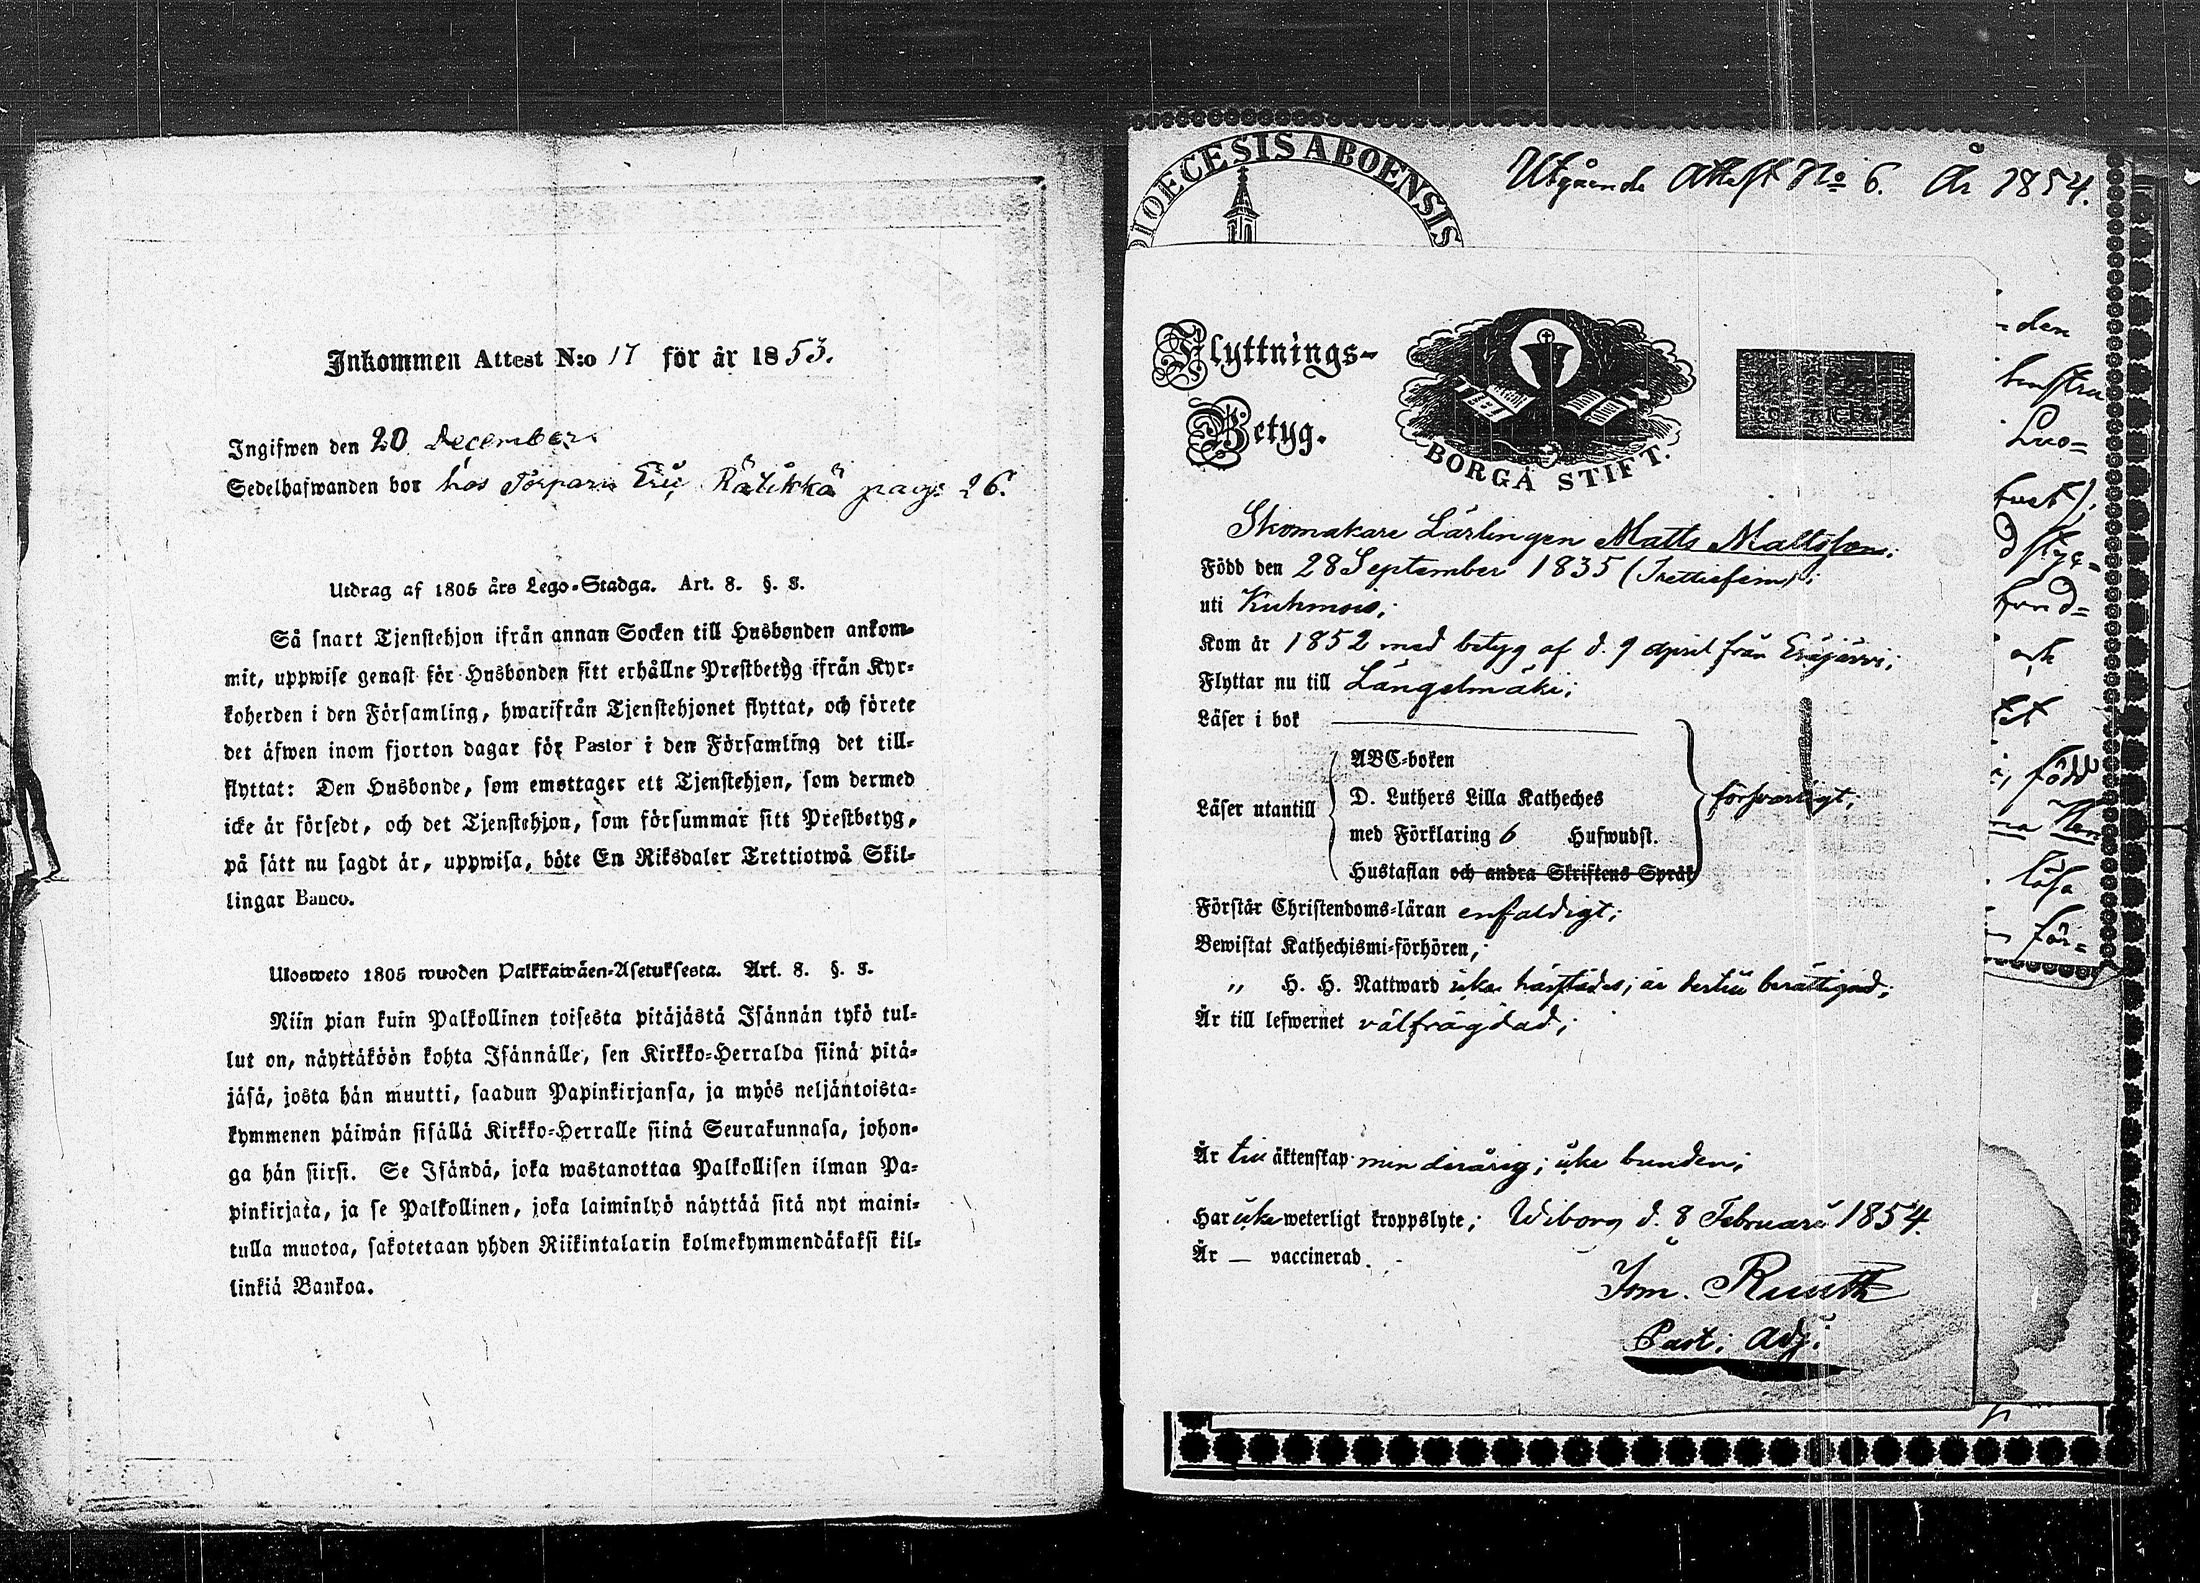 Inkommen Attest N:o 17 för år 1853.
Ingifwen den 20 December
Sedelhafwanden bor hos Torparn Eric Rätikkä pag: 26.
Utdrag af 1805 års Lego-Stadga. Art. 8. §. 3.
Så snart Tjenstehjon ifrån annan Socken till Husbonden ankom-
mit, uppwise genast för Husbonden sitt erhållne Prestbetyg ifrån Kyr-
koherden i den Församling, hwarifrån Tjenstehjonet flyttat, och förete
det äfwen inom fjorton dagar för Pastor i den Församling det till-
flyttat: Den Husbonde, som emottager ett Tjenstehjon, som dermed
icke är försedt, och det Tjenstehjon, som försummar sitt Prestbetyg,
på sätt nu sagdt är, uppwisa, böte En Riksdaler Trettiotwå Skil-
lingar Banco.
Ulosweto 1805 wuoden Palkkawäen-Asetuksesta. Art. 8. §. 3.
Niin pian kuin Palkollinen toisesta pitäjästä Isännän tykö tul-
lut on, näyttäköön kohta Isännälle, sen Kirkko-Herralda siinä pitä-
jäsä, josta hän muutti, saadun Papinkirjansa, ja myös neljäntoista-
kymmenen päiwän sisällä Kirkko-Herralle siinä Seurakunnasa, johon-
ga hän siirsi. Se Isändä, joka wastanottaa Palkollisen ilman Pa-
pinkirjata, ja se Palkollinen, joka laiminlyö näyttää sitä nyt maini-
tulla muotoa, sakotetaan yhden Riikintalarin kolmekymmendäkaksi kil-
linkiä Bankoa.
DIOECESIS ABOENSIS
Utgående Attest No 6. År 1854.
Flyttnings-
Betyg.
BORGÅ STIFT.
Skomakare Lärlingen Matts Mattsson;
Född den 28 September 1835 (Trettiofem);
uti Kuhmois;
Kom år 1852 med betyg af d. 9 april från Eräjärvi;
Flyttar nu till Längelmäki;
Läser i bok
Läser utantill
ABC-boken
D. Luthers Lilla Katheches
med Förklaring 6 Hufwudst.
Hustaflan och andra Skriftens Språk
försvarligt;
Förstår Christendoms-läran enfaldigt;
Bewistat Kathechismi-förhören,
„ H. H. Nattward icke härstädes; är dertill berättigad;
Är till lefwernet välfrägdad;
Är till äktenskap minderårig; icke bunden;
Har icke weterligt kroppslyte; Wiborg d. 8 Februari 1854.
Är — vaccinerad.
Jom. Ruuth
Past: Adj:
den
Luo-
och
född
läsa
för-